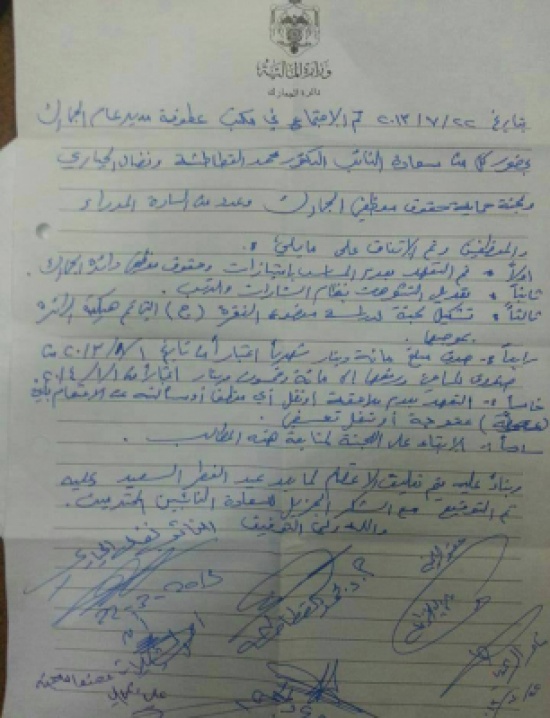 وزارة المالية
دائرة الجمارك
بتاريخ ٢٠١٣/٧/٢٢ تم الاجتماع في مكتب عطوفة مدير عام الجمارك
بحضور كل من سعادة النائب الدكتور محمد القطاطشة ونضال الحياري
ولجنة حماية حقوق موظفين الجمارك وعدد من السادة المدراء
والموظفين وتم الاتفاق على مايلي :
اولاً - تم التعهد بعدم المساس بامتيازات وحقوق موظفين دائرة الجمارك .
ثانياً - تعديل التشوهات بنظام الشارات والرتب .
ثالثاً - تشكيل لجنة لدراسة موضوع الفقرة (ج) القائم هيكلة الدائرة
بموجبها .
رابعاً - صرف مبلغ مائة دينار شهرياً اعتباراً من تاريخ ٢٠١٣/٨/١ من
صندوق ورفعها الى مائة وخمسون دينار اعتباراً من ٢٠١٤/١/١ .
خامساً - التعهد بعدم ملاحقة او نقل أي موظف او مسائلته عن الاعتصام بأي
عقوبة أو نقل تعسفي .
سادساً - الابقاء على اللجنة لمتابعة هذه المطالب .
وبناء عليه يتم تعليق الاعتصام لما بعد عيد الفطر السعيد وعليه
تم التوقيع مع الشكر الجزيل لسعادة النائبين المحترمين .
والله ولي التوفيق
النائب نضال الحياري
د. محمد القطاطشة
22-7-2013